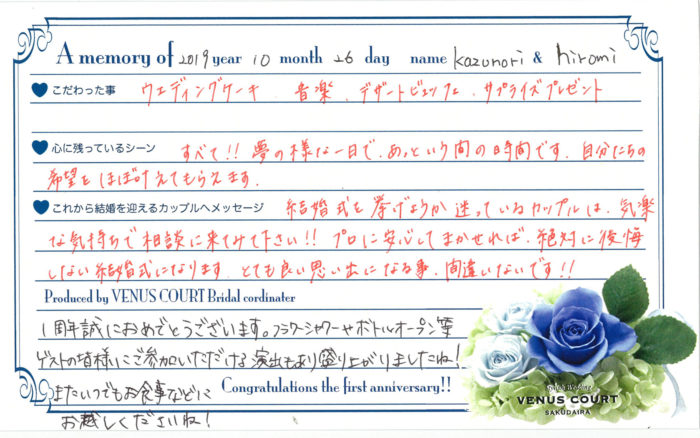 A memory of 2019 year 10 month 26 day name kazunori & hiromi
こだわった事 ウエディングケーキ 音楽、デザートビュッフェ、サプライズプレゼント
心に残っているシーン すべて!! 夢の様な一日で、あっという間の時間です。自分たちの
希望をほぼ叶えてもらえます。
これから結婚を迎えるカップルへメッセージ 結婚式を挙げようか迷っているカップルは、気楽
な気持ちで相談に来てみて下さい!! プロに安心してまかせれば、絶対に後悔
しない結婚式になります。とても良い思い出になる事、間違いないです!!
Produced by VENUS COURT Bridal cordinater
1周年誠におめでとうございます。フラワーシャワーやボトルオープン等
ゲストの皆様にご参加いただける演出もあり盛り上がりましたね!
またいつでもお食事などに
お越しくださいね!
Congratulations the first anniversary!!
Wedding
VENUS COURT
SAKUDAIRA